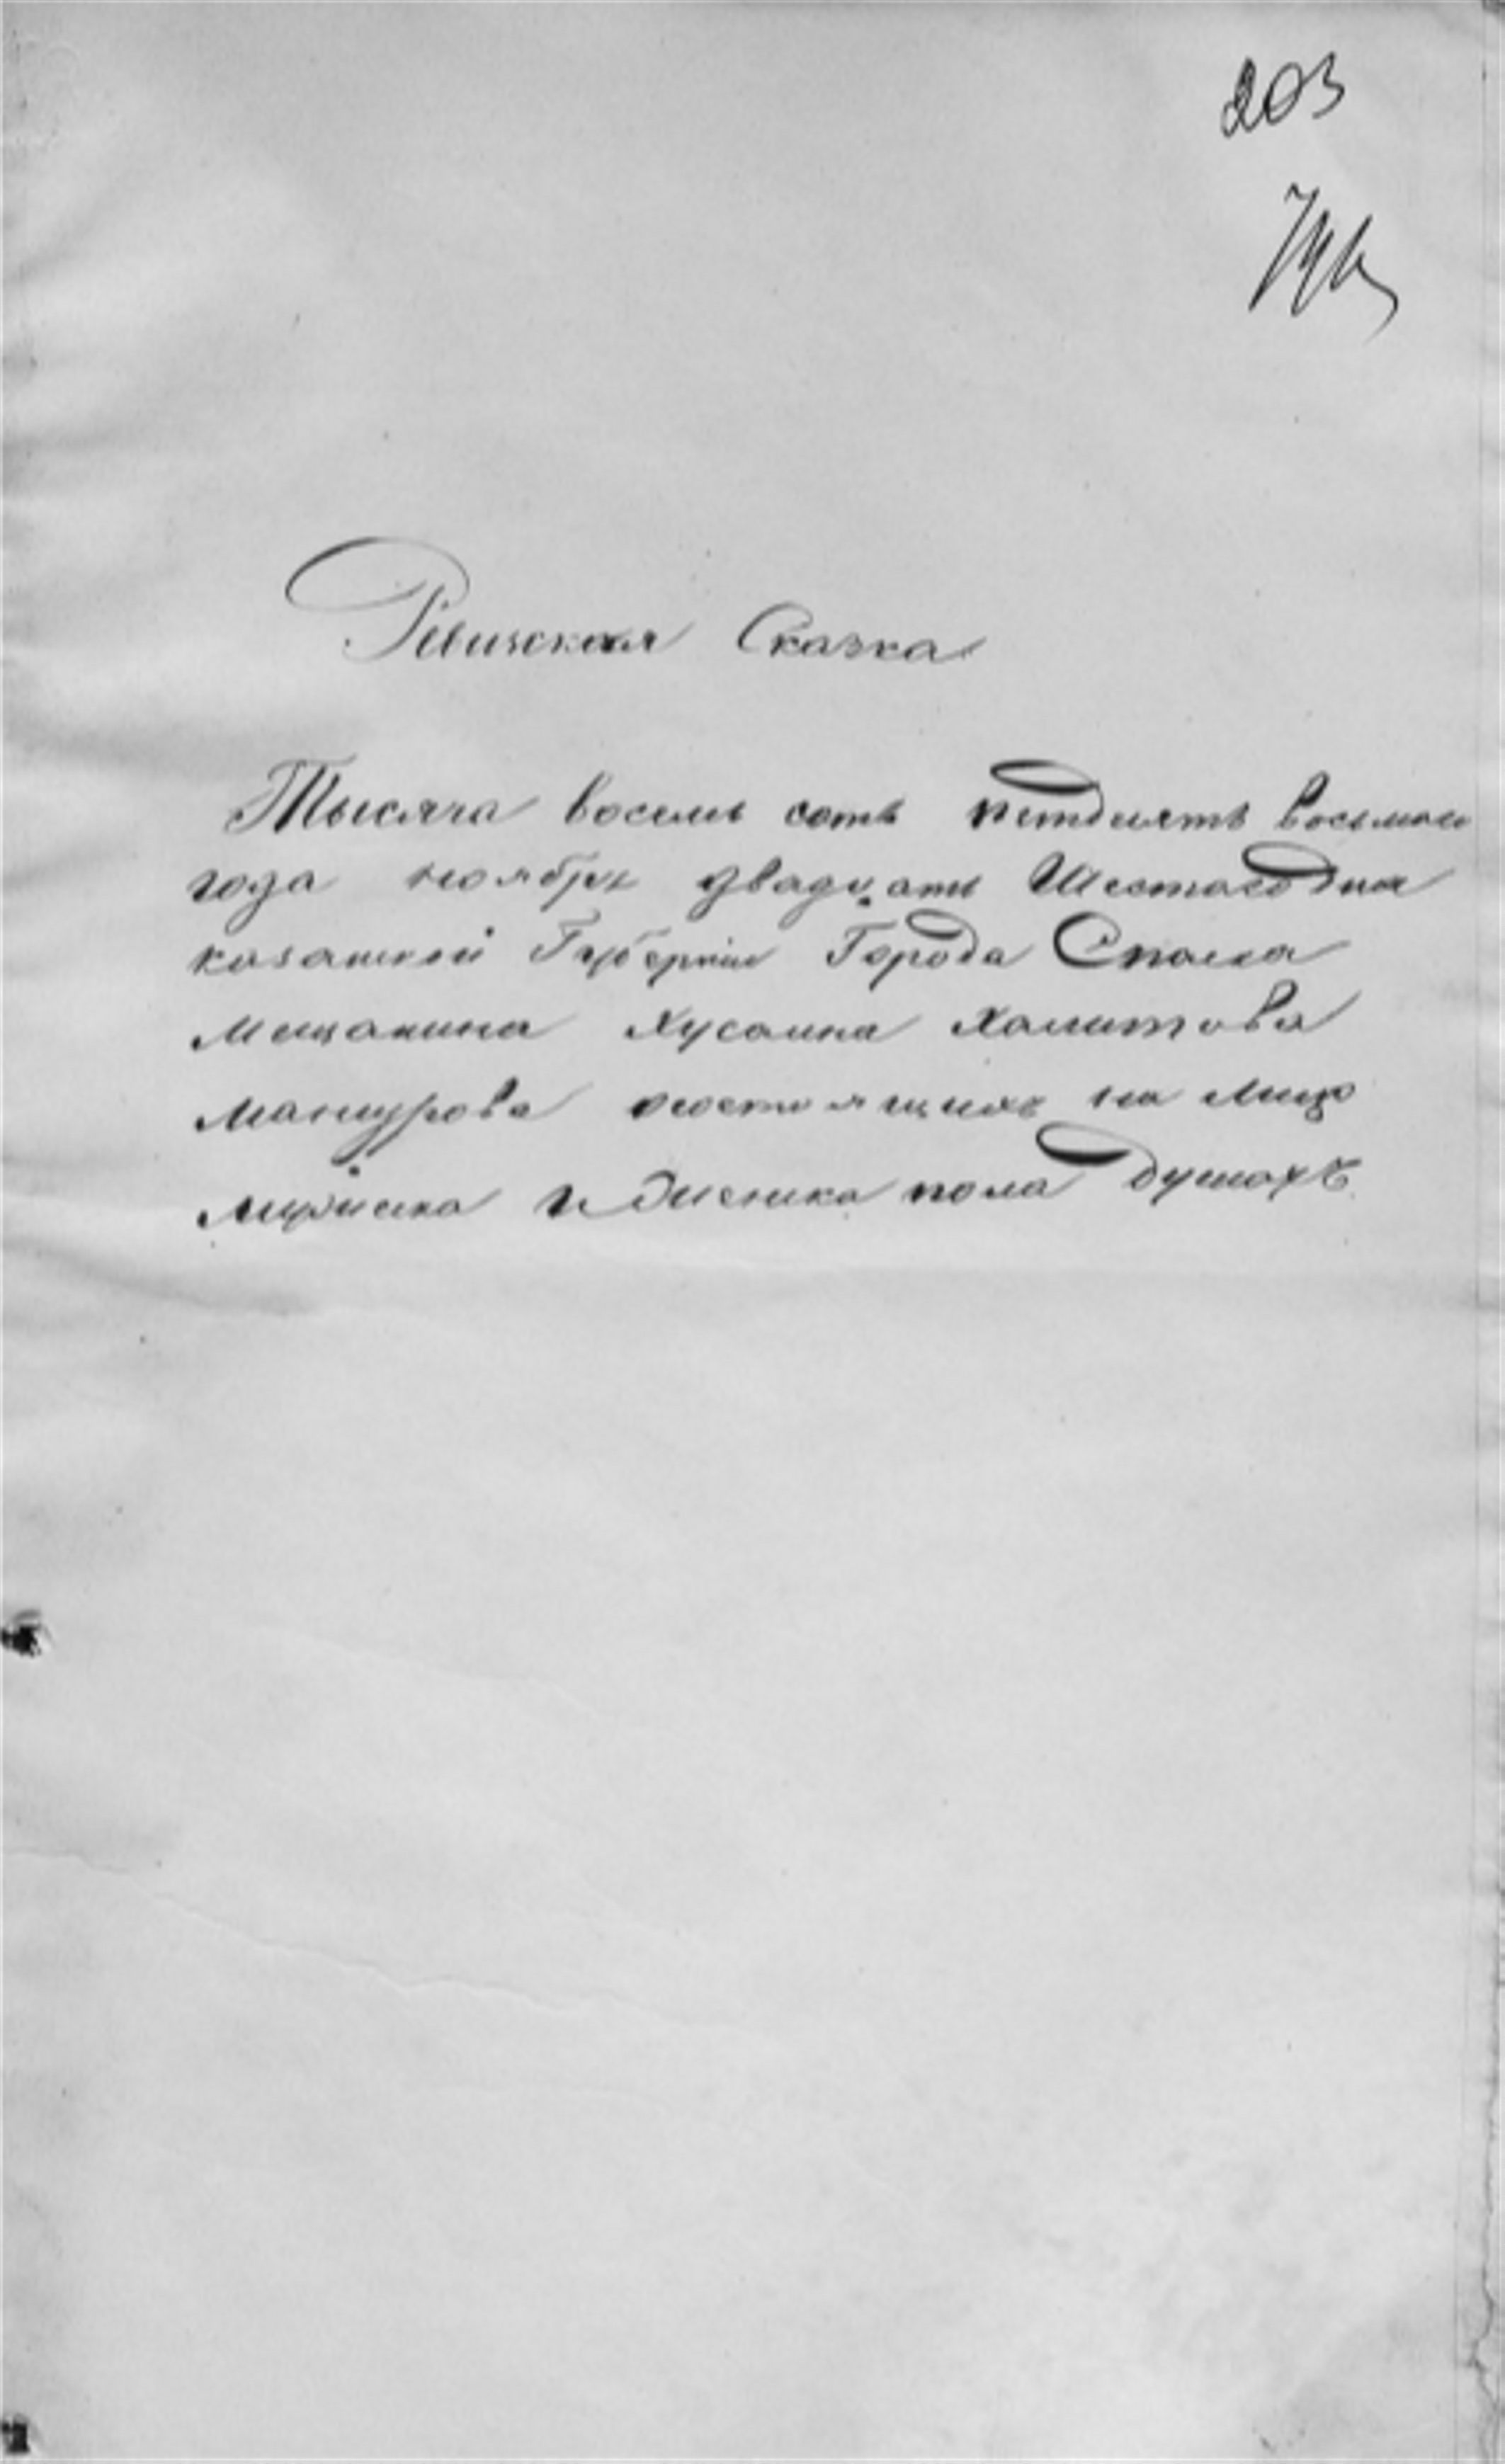 203
Ревизская Сказка
Тысяча восемь сотъ петдесятъ восьмаго
года ноября двадцать Шестаго дня
казанской Губерніи Города Спаска
Мещанина Хусаина Хамитова
Мансурова состоящихъ на лицо
мужеска и женска пола душахъ